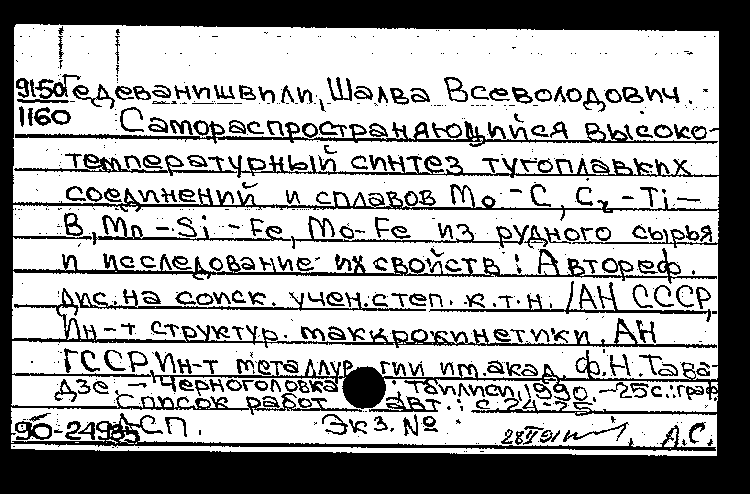 9150 Гедеванишвили, Шалва Всеволодович.
1160 Самораспространяющийся высоко-
температурный синтез тугоплавких
соединений и сплавов Mo-C, Cr-Ti-
B, Mn-Si-Fe, Mo-Fe из рудного сырья
и исследование их свойств: Автореф.
дис. на соиск. учен. степ. к.т.н. /АН СССР,
Ин-т структур. маккрокинетики, АН
ГССР, Ин-т металлургии им. акад. Ф.Н. Тава-
дзе - Черноголовка Тбилиси, 1990. - 25 с.: граф
Список работ авт.: с. 24-25
90-24985 ДСП. Экз. №
А.С.